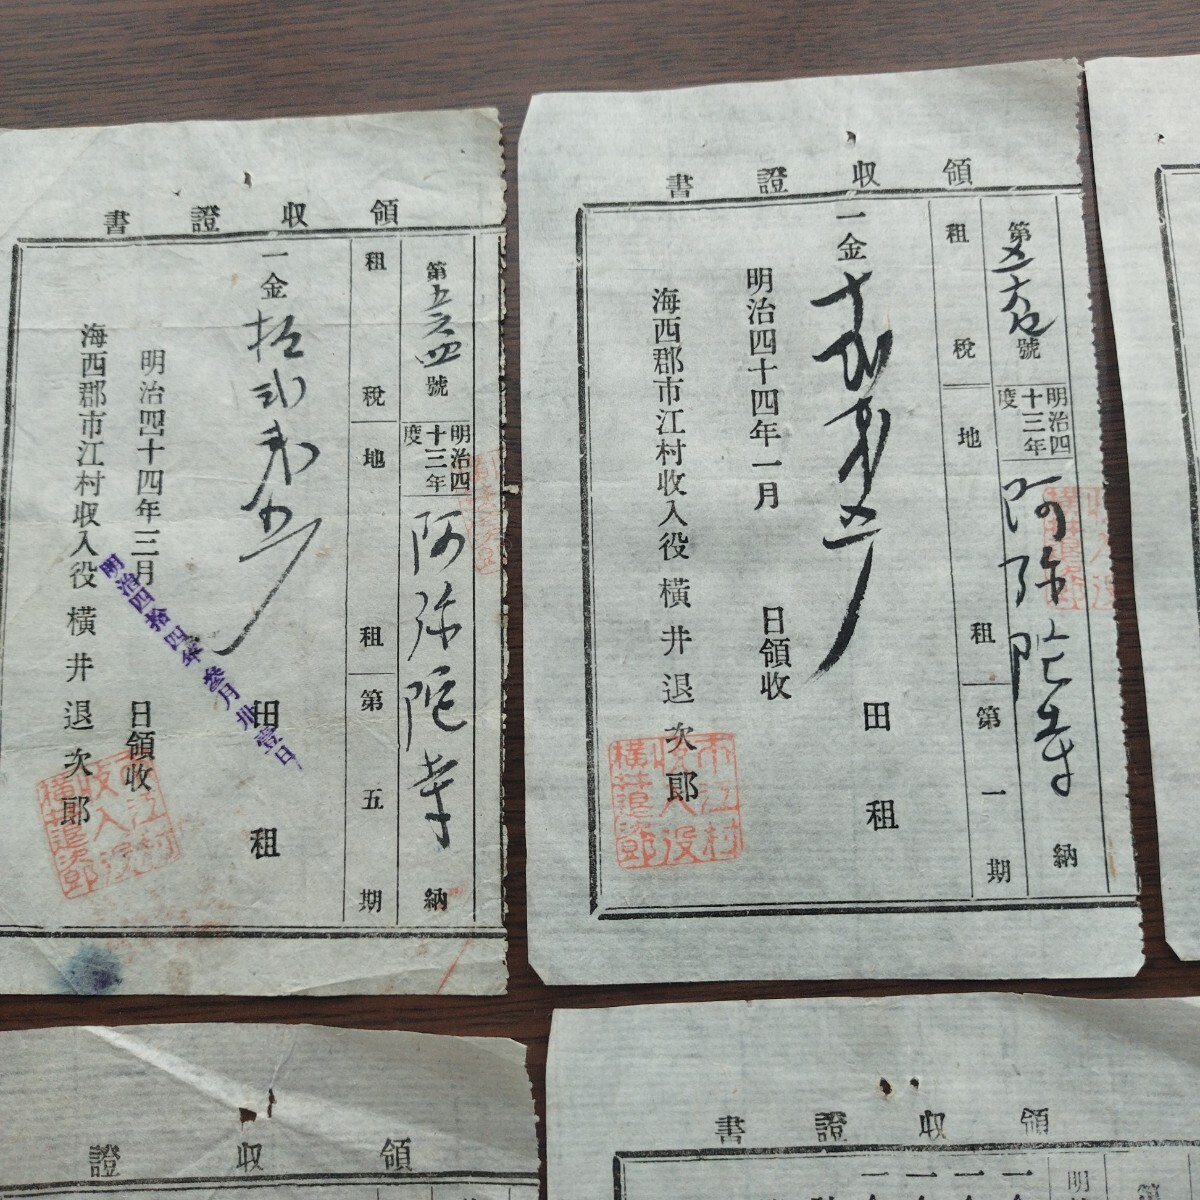 領収證書
第 號
明治四十三年度
阿弥陀寺 納
租税 地租 第一期
一金
田租
明治四十四年一月 日領収
海西郡市江村収入役 横井退次郎
市江村
収入役
横井退次郎
領収證書
第 號
明治四十三年度
阿弥陀寺 納
租税 地租 第五期
一金拾弐
田租
明治四十四年三月 日領収
明治四拾四年叄月卅壹日
海西郡市江村収入役 横井退次郎
市江村
収入役
横井退次郎
領収證書
明
領収證